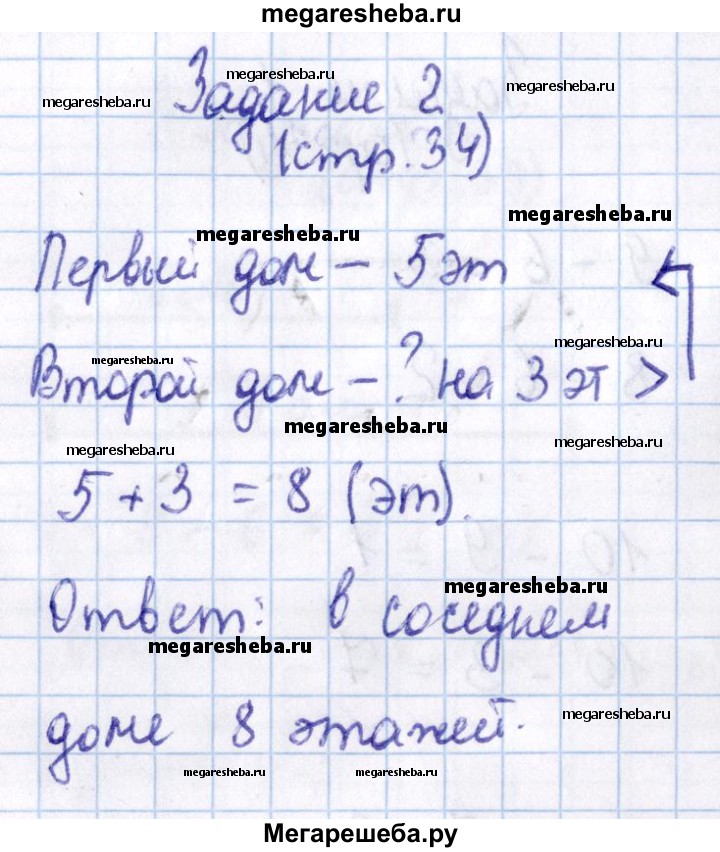 megaresheba.ru
megaresheba.ru
megaresheba.ru
megaresheba.ru
Задание 2
(стр. 34)
megaresheba.ru
megaresheba.ru
Первый дом — 5 эт
megaresheba.ru
megaresheba.ru
Второй дом — ? на 3 эт >
megaresheba.ru
megaresheba.ru
megaresheba.ru
5 + 3 = 8 (эт).
megaresheba.ru
Ответ: в соседнем
megaresheba.ru
megaresheba.ru
доме 8 этажей.
megaresheba.ru
megaresheba.ru
Мегарешеба.ру